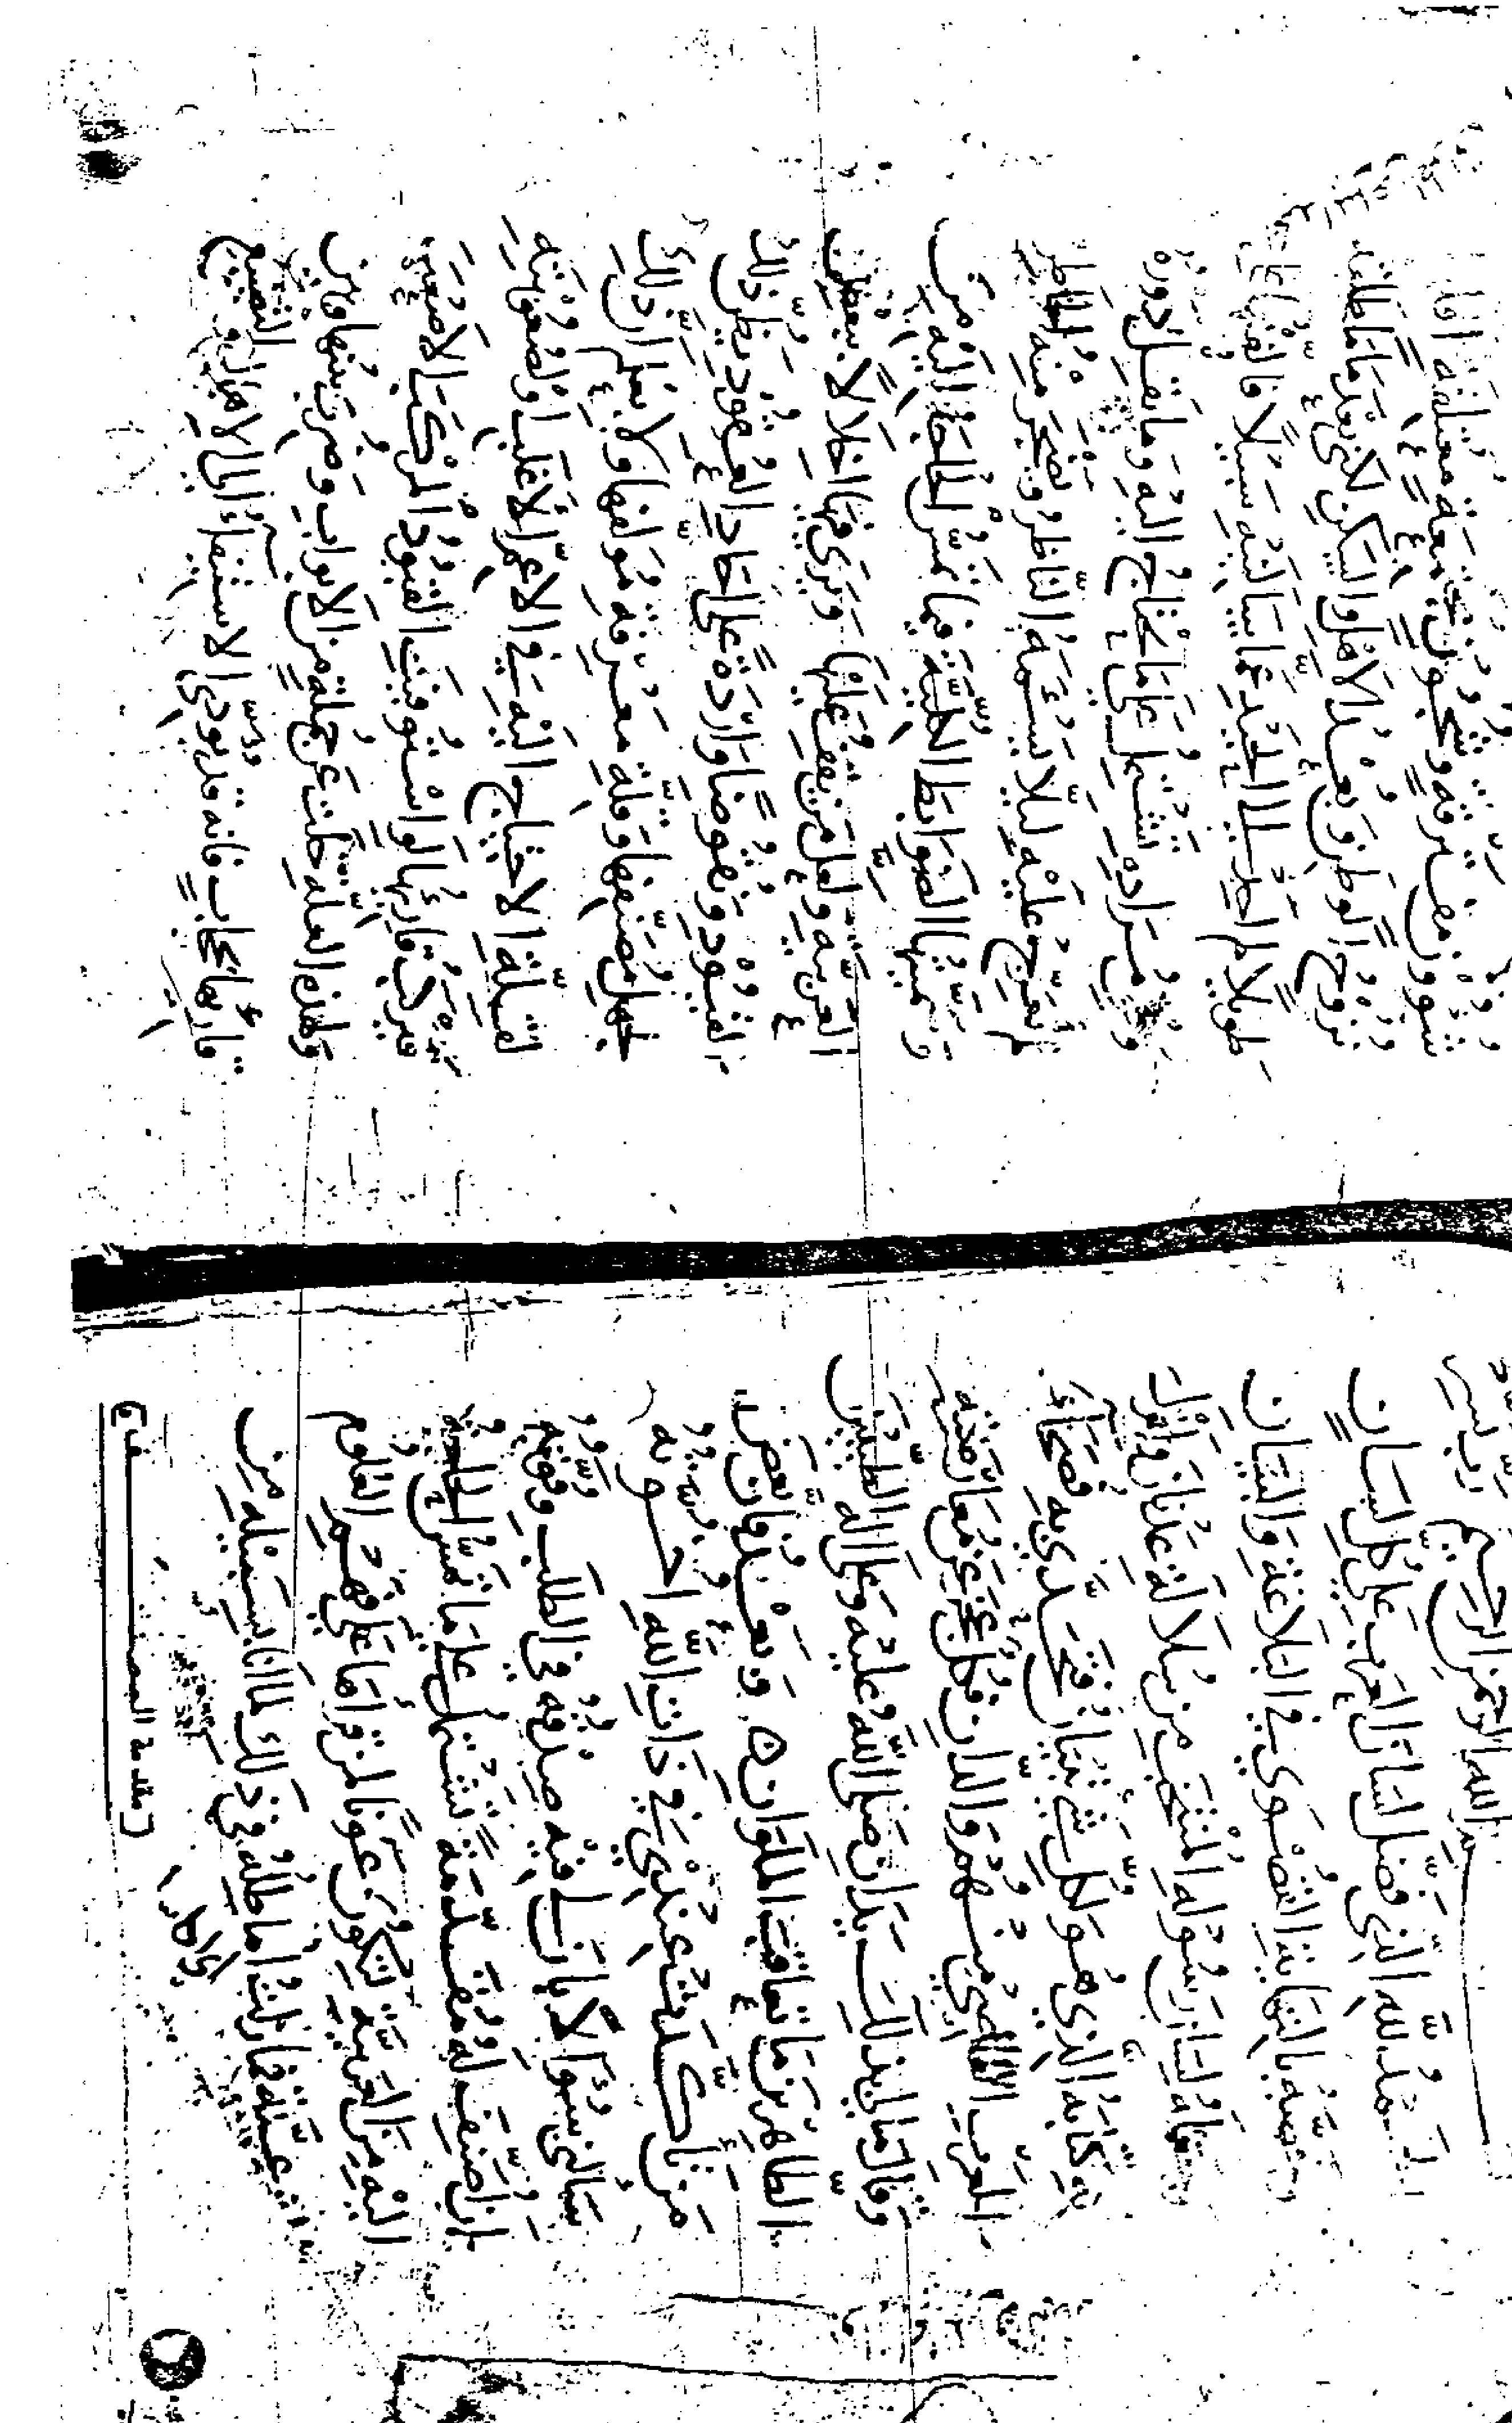 الله الرحمن الرحيم رب يسر
الحمد لله الذي فضل لسان العرب على كل لسان
وخصه بالنهاية القصوى في البلاغة والتبيان
لسان رسوله المنتخب من سلالة عدنان وأنزل
به كتابه الذي هو لكل شيء تبيان فتحدى به فصحاء
العرب الأقاصي منهم والدان فكل عجز عن معارضته
وقال مالي بذلك يدان صلى الله عليه وعلى اله الطيبين
الطاهرين ما تعاقب الملوان ه وبعد فان بعض
من تأكدت عندي في ذات الله اخوته
سألني سؤالا بان لي فيه صدقه في الطلب وقوته
ان اصنف له مقدمة تشتمل على ما تمس الحاجة
اليه من العربية لتكون عونا لمن رامها على فهم العلوم
ما طلبه في ذلك لما انا بسبيله من
[مقدمة المصنف]
شؤون مفرقة وشجون معتلقة
بروح الوطن وبعد الاهل والسكن لكني بعد ما ماطلته
طويلا لم اجد الى الحيد عما سألنيه سبيلا فالفتها على
وفق مراده تشتمل على ما يحتاج اليه وما يقل دوره
لم يعرج عليه ليلا يسئمه الناظر ويضجر منه الخاطر
الضوابط الكلية فيما تمس الحاجة اليه من
العربية ولعل من يقف عليها ويرى فيها اخلالا ببعض
القيود ونقوضا واردة على احاد العقود يظن ذلك
لجهل مصنفها وقلة معرفة مؤلفها ولا يعلم ان ذلك
لقلة الاحتياج اليه في الاعم الاغلب او لصعوبته
فيركب قاريها لو استوفيت القيود المركب الاصعب
ولهذه العلة خلت عن جملة من الابواب وضرب بينها وبين
قاريها بحجاب فانه قد يؤدي الاستقراء الى الاهمال و التضييع